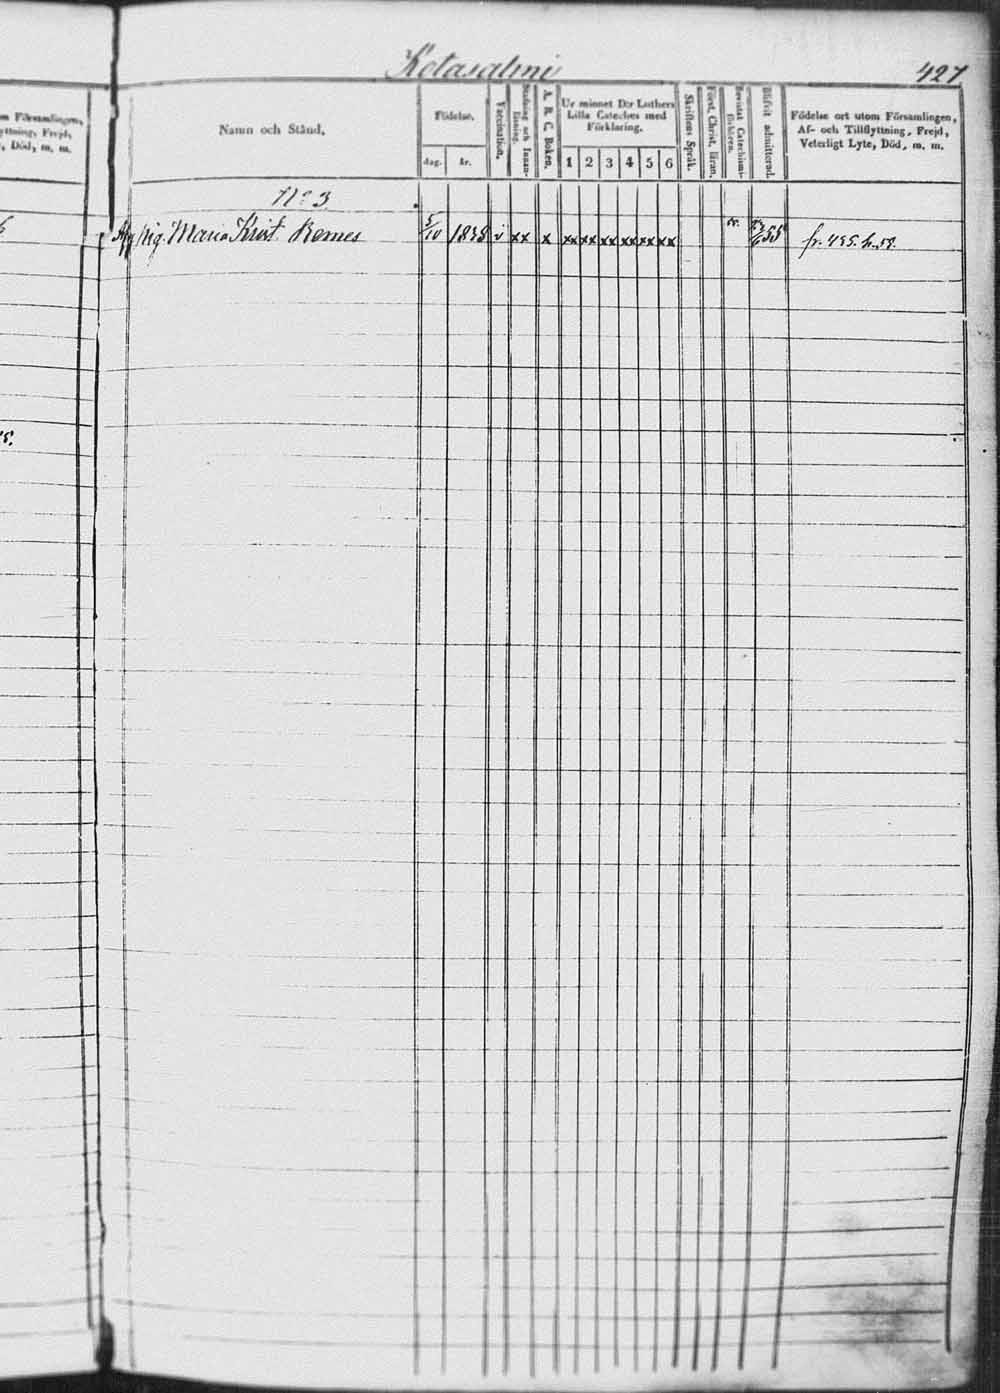 Kotasalmi
427
m Församlingen,
yttning, Frejd,
, Död, m. m.
Namn och Stånd,
Födelse.
dag.
år.
Vaccination.
Stafning och Innan-
läsning.
A. B. C. Boken.
Ur minnet D:r Luthers
Lilla Cateches med
Förklaring.
1 2 3 4 5 6
Skriftens Språk.
Först. Christ. läran.
Bevistat Catechismi-
förhören.
Blifvit admitterad.
Födelse ort utom Församlingen,
Af- och Tillflyttning, Frejd,
Veterligt Lyte, Död, m. m.
No 3
Pig. Maria Krist. Remes 5/10 1838 v xx x xx xx xx xx xx xx 58. fr. 495. h. 58.
58.